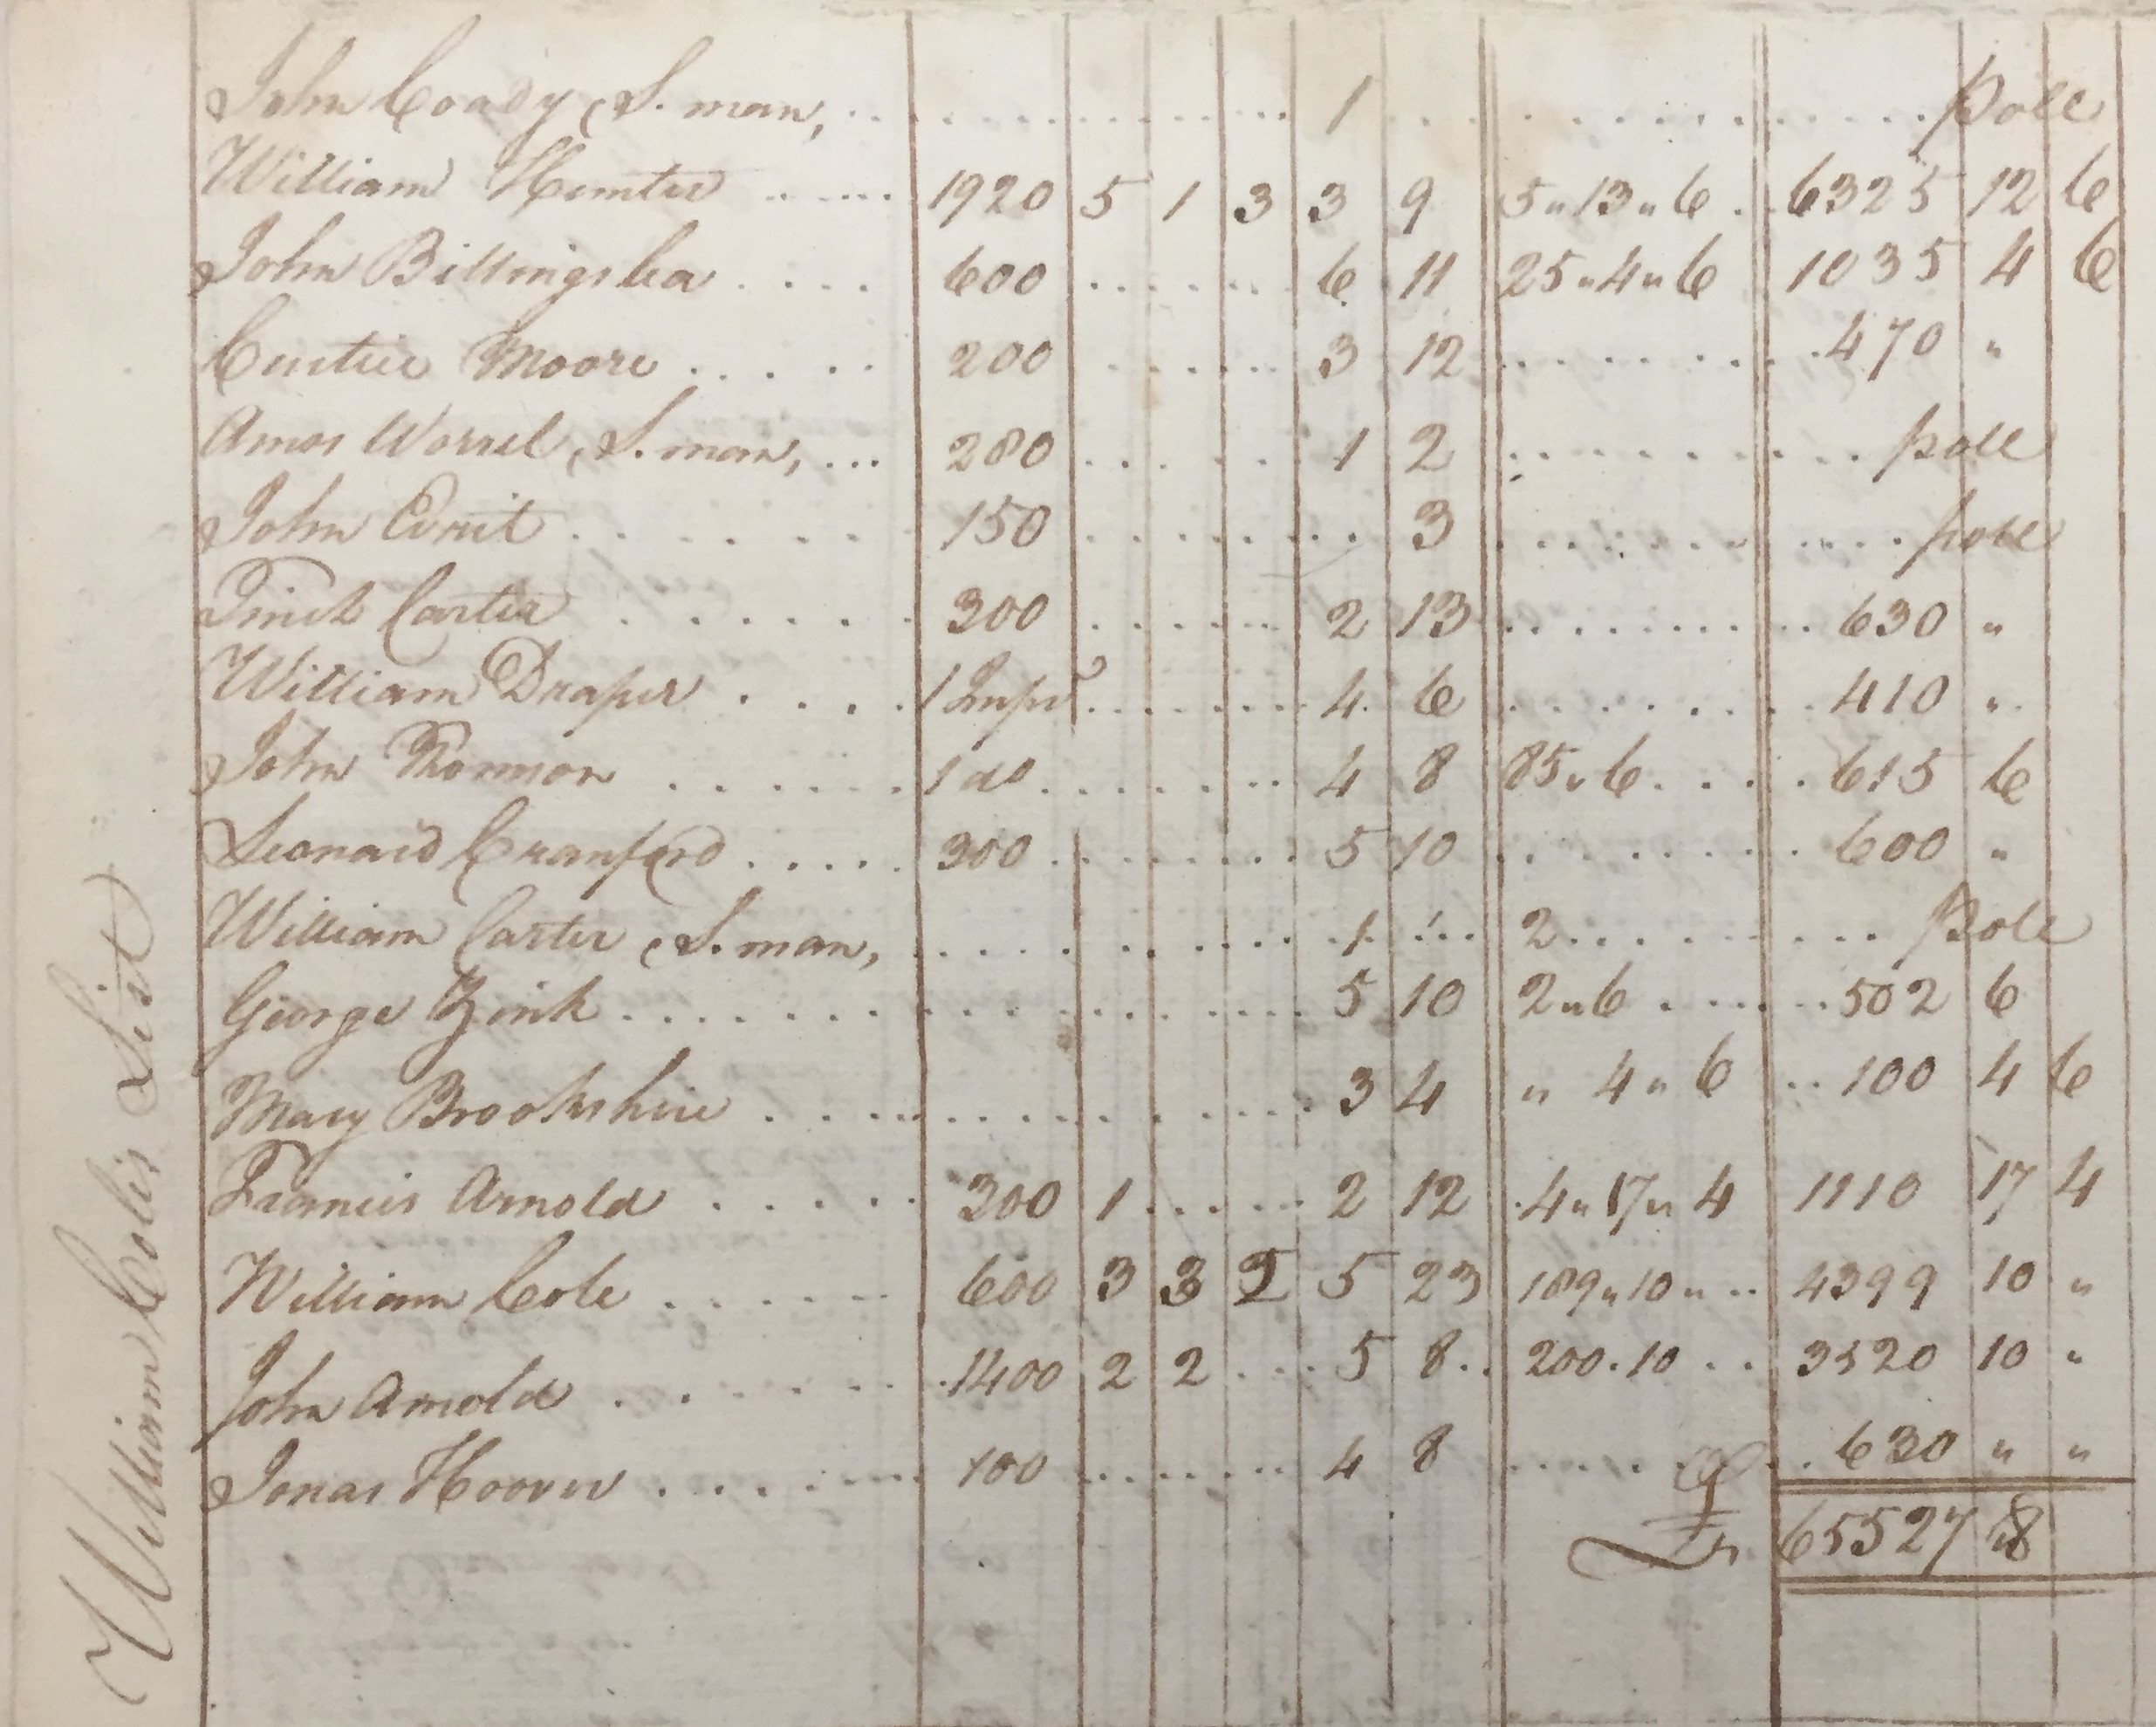 William Coles List
John Coady, S. man, 1 Pole
William Hunter 1920 5 1 3 3 9 5 " 13 " 6 6325 12 6
John Billingslea 600 6 11 25 " 4 " 6 1035 4 6
Moore 200 3 12 470 "
Amos Worrel, S. man, 280 1 2 pole
John 150 3 pole
Carter 300 2 13 630 "
William Draper 1 Impr 4 6 410 "
John 1 do 4 8 85 " 6 615 6
Leonard Cranford 300 5 10 600 "
William Carter, S. man, 1 2 Pole
George Zink 5 10 2 " 6 502 6
Mary Brookshire 3 4 " 4 " 6 100 4 6
Francis Arnold 300 1 2 12 4 " 17 " 4 1110 17 4
William Cole 600 3 3 2 5 23 189 " 10 " 4399 10 "
John Arnold 1400 2 2 5 8 200 . 10 3520 10 "
Jonas Hoover 100 4 8 630 " "
65527 18